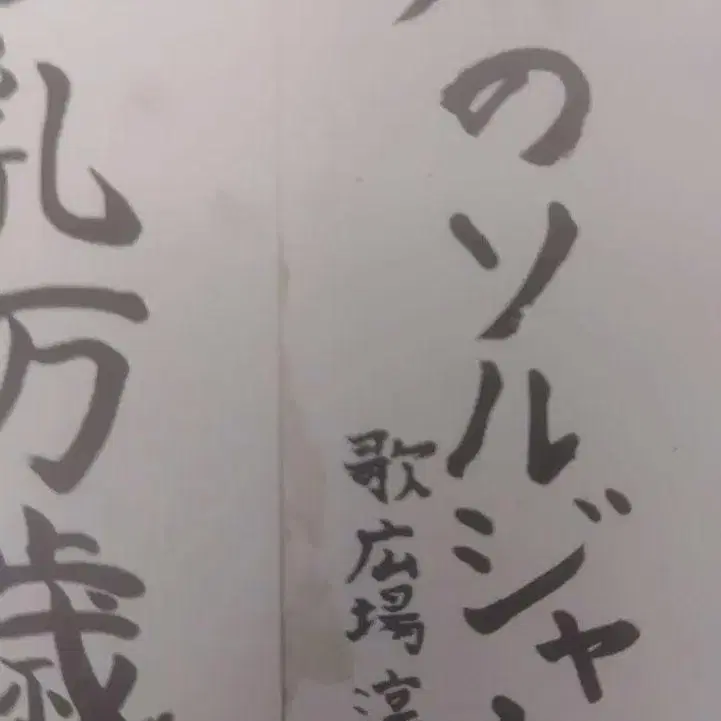 のソルジャ
歌広場 淳
乳万歳